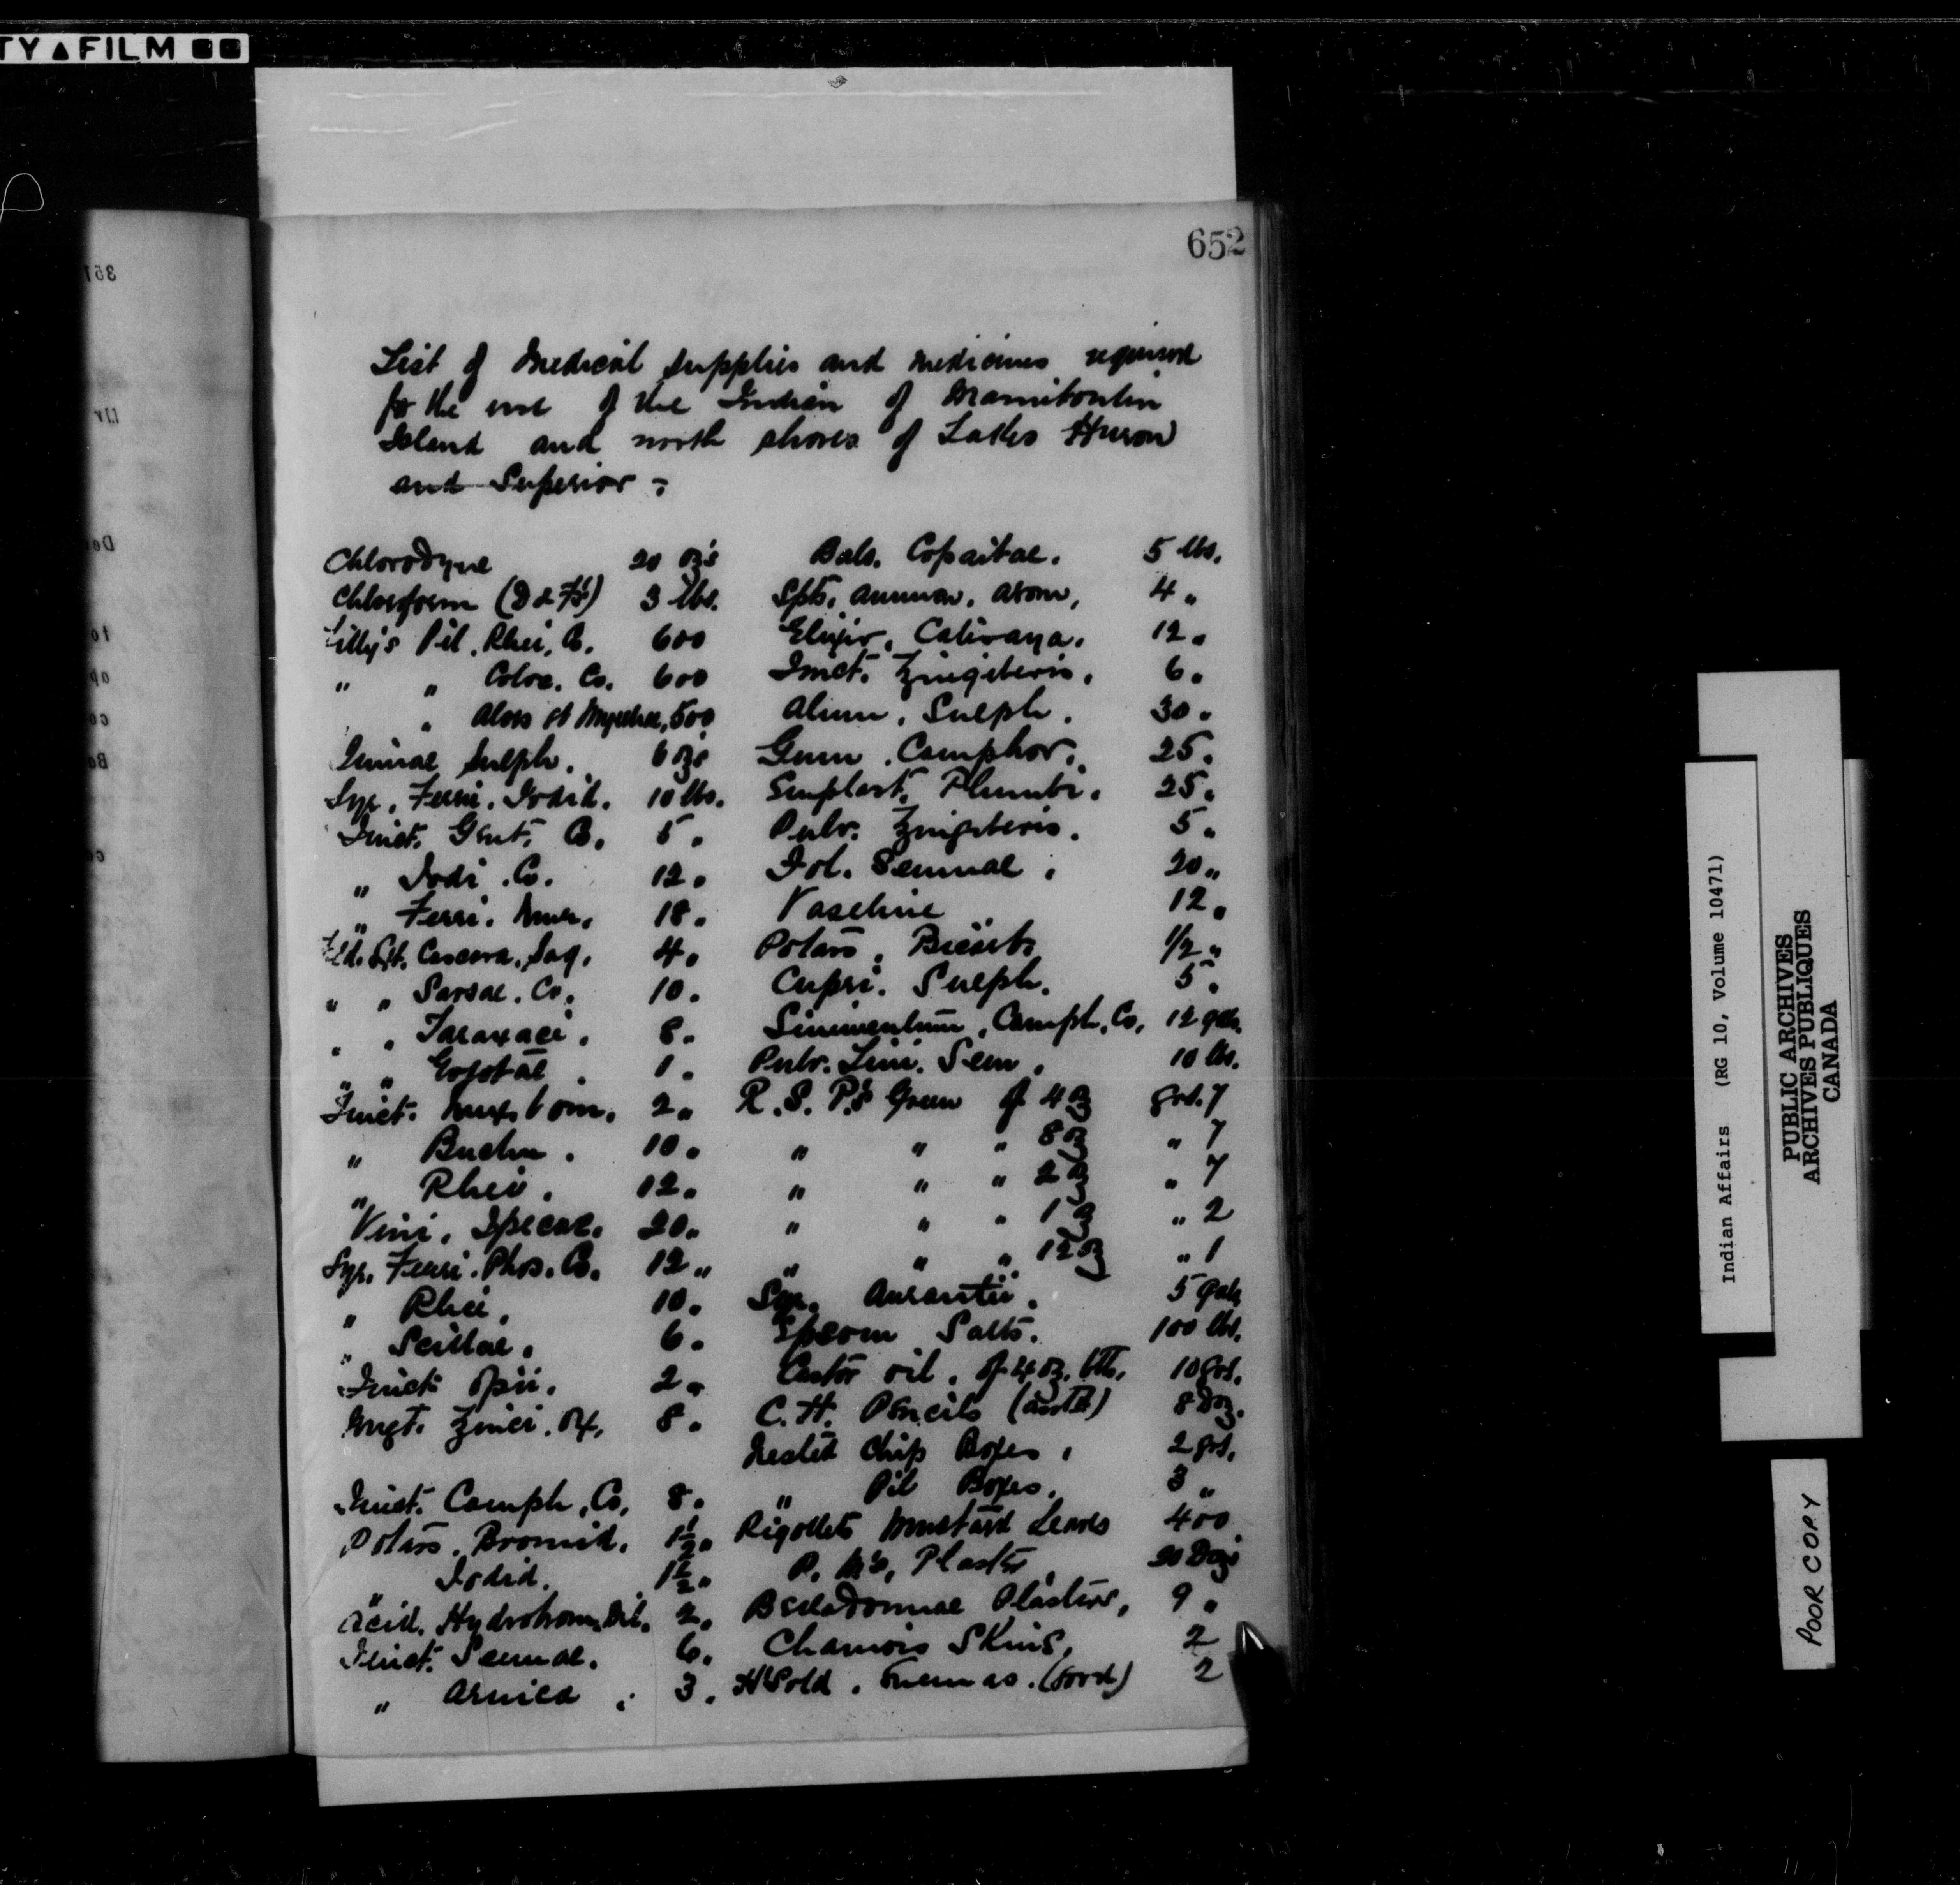 TY▲FILM
652
List of Medical Supplies and medicines required
for the use of the Indian of Manitoulin
Island and north shores of Lakes Huron
and Superior :
Chlorodyne 20 ozs Bals. Copaibae. 5 lbs.
Chloroform (D & F's) 3 lbs. Spts. Ammon. Arom, 4 "
Lilly's Pil. Rhei. Co. 600 Elixir. Calisaya. 12 "
" " Coloc. Co. 600 Tinct. Zingiberis. 6 "
" Aloes et Myrrhae, 500 Alum. Sulph. 30 "
Quinae Sulph. 6 ozs Gum Camphor. 25 "
Syr. Ferri. Iodid. 10 lbs. Emplast. Plumbi. 25 "
Tinct. Gent. Co. 5 " Pulv. Zingiberis. 5 "
" Iodi. Co. 12 " Fol. Sennae. 20 "
" Ferri. Mur. 18 " Vaseline 12 "
Fld. Ext. Cascara. Sag. 4 " Potass. Bicarb 1/2 "
" " Sarsae. Co. 10 " Cupri. Sulph. 5 "
" " Taraxaci. 8 " Linimentum. Camph. Co. 12 gals.
" " Ergotae 1 " Pulv. Lini. Sem. 10 lbs.
Tinct. Nux. Vom. 2 " R. S. P.s Green of 4 oz grs. 7
" Buchu. 10 " " " " 8 oz " 7
" Rhei. 12 " " " " 2 oz " 7
Vini. Ipecac. 20 " " " " 1 oz " 2
Syr. Ferri. Phos. Co. 12 " " " " 12 oz " 1
" Rhei. 10 " Syr. Aurantii. 5 gals
" Scillae. 6 " Epsom Salts. 100 lbs.
Tinct. Opii. 2 " Castor oil. of 4 oz. btls. 10 grs.
Ungt. Zinci. Ox. 8 " C. H. Pencils 8 Doz.
Nested Chip Boxes. 2 grs.
Tinct. Camph. Co. 8 " " Pil Boxes. 3 "
Potass. Bromid. 1 1/2 " Rigollets Mustard Leaves 400
" Iodid. 1 1/2 " Plaster 20 Doz
Acid. Hydrobrom. Dil. 2 " Belladonnae Plasters, 9 "
Tinct. Sennae. 6 " Chamois Skins. 2
" Arnica 3 " 2
Indian Affairs (RG 10, Volume 10471)
PUBLIC ARCHIVES
ARCHIVES PUBLIQUES
CANADA
POOR COPY